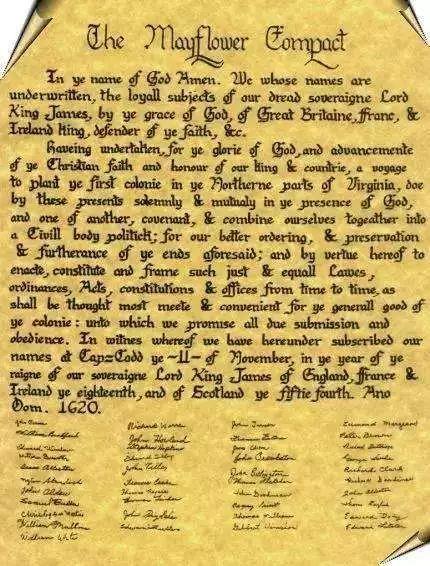 The Mayflower Compact
In ye name of God Amen. We whose names are
underwritten, the loyall subjects of our dread soveraigne Lord
King James, by ye grace of God, of Great Britaine, ffranc, &
Ireland king, defender of ye faith, &c.
Haveing undertaken, for ye glorie of God, and advancemente
of ye Christian faith and honour of our king & countrie, a voyage
to plant ye first colonie in ye Northerne parts of Virginia, doe
by these presents solemnly & mutualy in ye presence of God,
and one of another, covenant, & combine ourselves togeather into
a Civill body politick; for our better ordering, & preservation
& furtherance of ye ends aforesaid; and by vertue hereof to
enacte, constitute and frame such just & equall Lawes,
ordinances, Acts, constitutions & offices from time to time, as
shall be thought most meete & convenient for ye generall good of
ye colonie: unto which we promise all due submission and
obedience. In witnes whereof we have hereunder subscribed our
names at Cap=Codd ye ~11~ of November, in ye year of ye
raigne of our soveraigne Lord King James of England, ffrance &
Ireland ye eighteenth, and of Scotland ye fiftie fourth. Ano
Dom. 1620.
William Bradford
Isaac Allerton
John Alden
Samuel Fuller
William Mullins
William White
Richard Warren
John Howland
Stephen Hopkins
John Tilley
John Rigdale
Edward Fuller
John Turner
Francis Eaton
John Crackston
Thomas Williams
Gilbert Winslow
Edmund Margeson
Peter Browne
George Soule
Richard Clark
John Allerton
Edward Doty